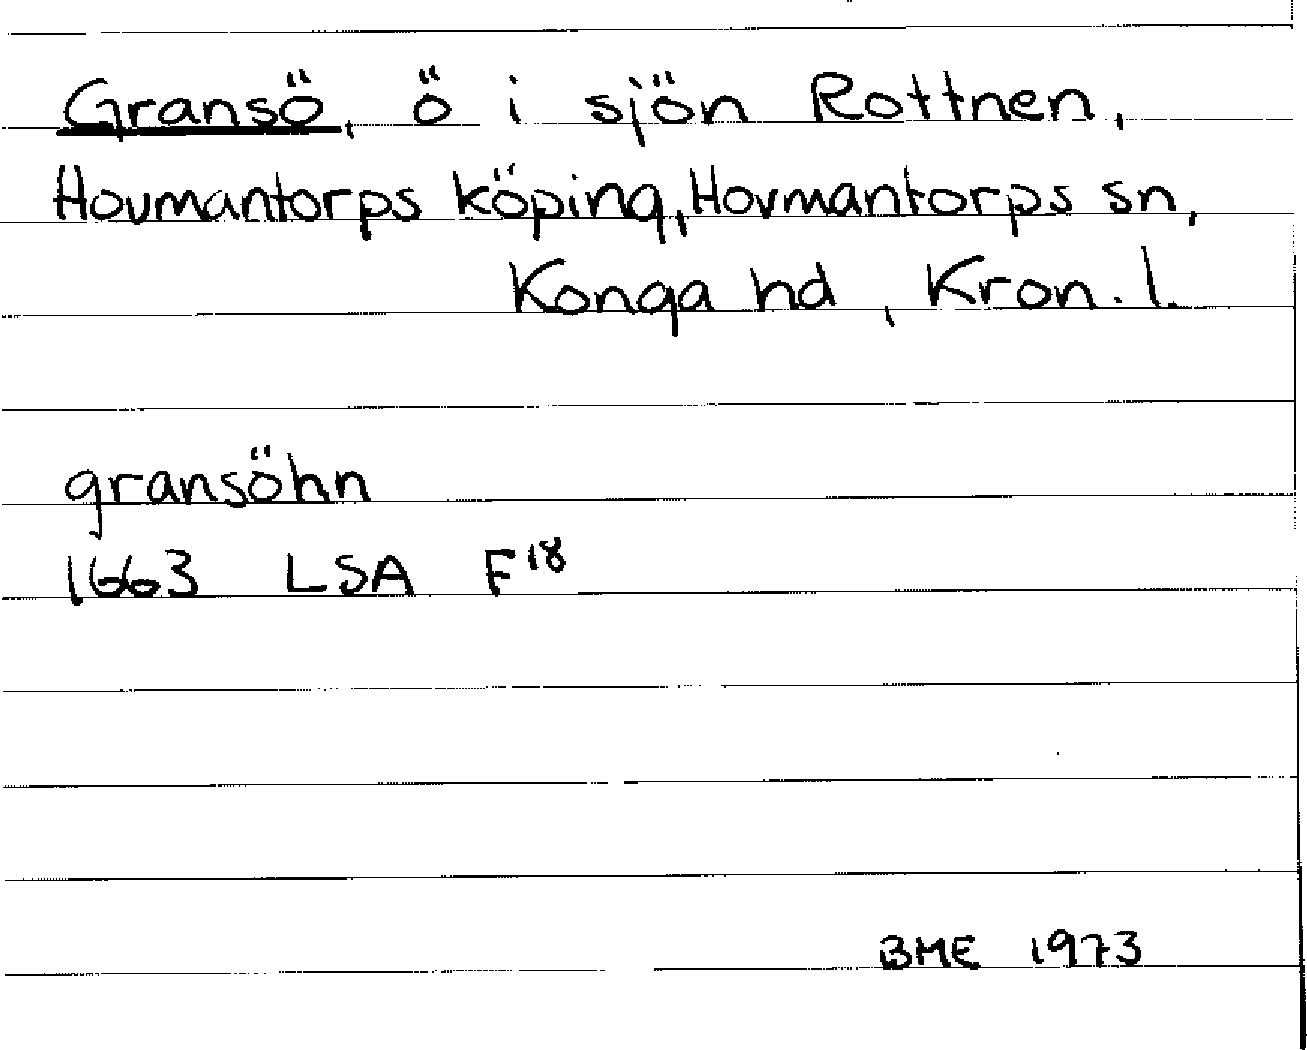 Gransö, ö i sjön Rottnen,
Hovmantorps köping, Hovmantorps sn,
Konga hd, Kron. l.
gransöhn
1663 LSA F18
BME 1973